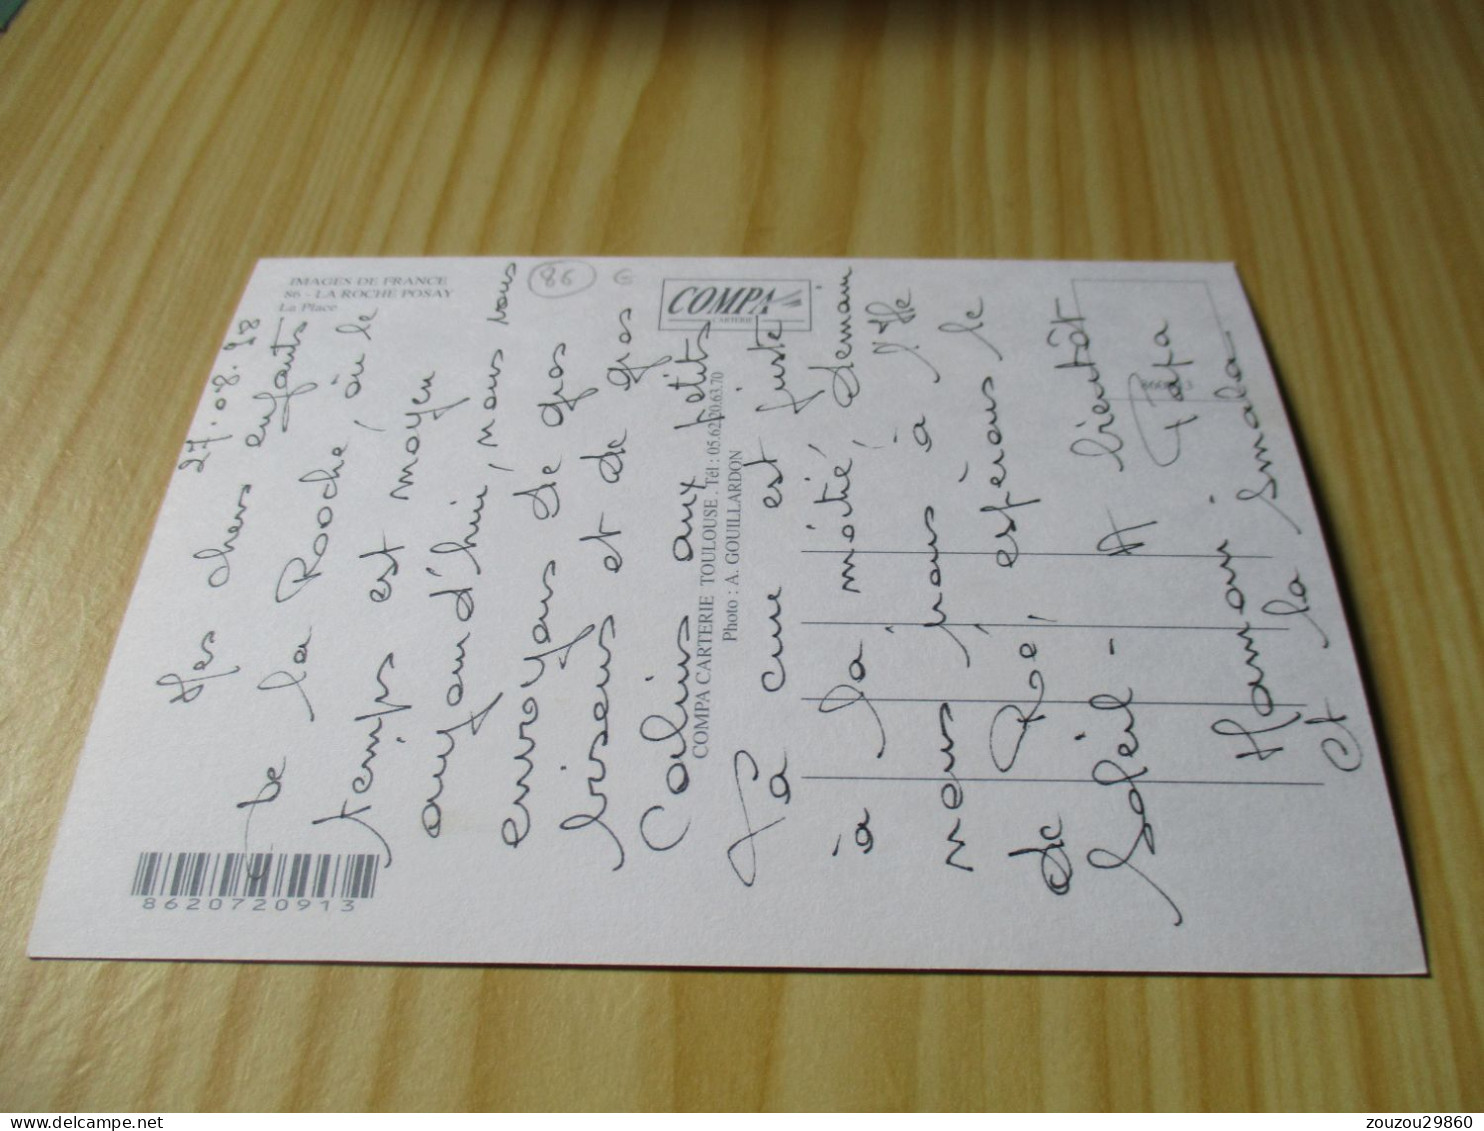 IMAGES DE FRANCE
86 - LA ROCHE POSAY
La Place
86 G
COMPA
CARTERIE
COMPA CARTERIE TOULOUSE . Tél : 05.62.20.63.70
Photo : A. GOUILLARDON
8620720913
27.08.98
Mes chers enfants
De la Roche, où le
temps est moyen
aujourd'hui, nous vous
envoyons de gros
bisous et de gros
Calins aux petits
La cure est juste
à la moitié, demain
nous irons à l'Ile
de Ré, espérons le
Soleil - A bientôt
Papa
Mamoui
et la smala
zouzou29860